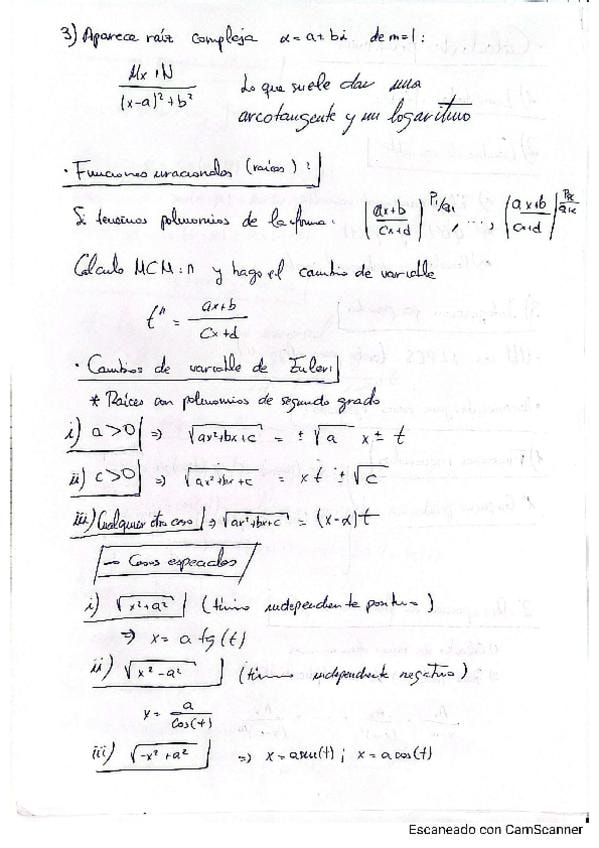 3) Aparece raíz compleja α = a + bi de m=1:
Mx+N / (x-a)²+b² Lo que suele dar una
arcotangente y un logaritmo
· Funciones irracionales (raíces):
Si tenemos polinomios de la forma: (ax+b / cx+d)^(P₁/q₁), ..., (ax+b / cx+d)^(Pₖ/qₖ)
Calculo MCM: n y hago el cambio de variable
tⁿ = ax+b / cx+d
· Cambios de variable de Euler:
* Raíces con polinomios de segundo grado
i) a>0 ⇒ √(ax²+bx+c) = ± √a x ± t
ii) c>0 ⇒ √(ax²+bx+c) = xt ± √c
iii) Cualquier otro caso ⇒ √(ax²+bx+c) = (x-α)t
→ Casos especiales
i) √(x²+a²) (término independiente positivo)
⇒ x = a tg(t)
ii) √(x²-a²) (término independiente negativo)
x = a / cos(t)
iii) √(-x²+a²) ⇒ x = a sen(t) ; x = a cos(t)
Escaneado con CamScanner